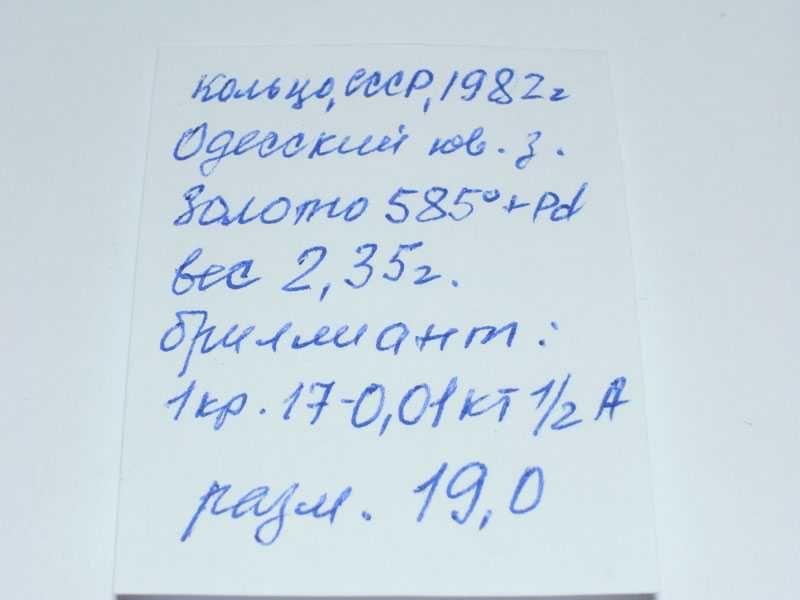 Кольцо, СССР, 1982г
Одесский юв. з.
Золото 585°+Pd
вес 2,35г.
бриллиант:
1кр. 17-0,01кт 1/2 А
разм. 19,0